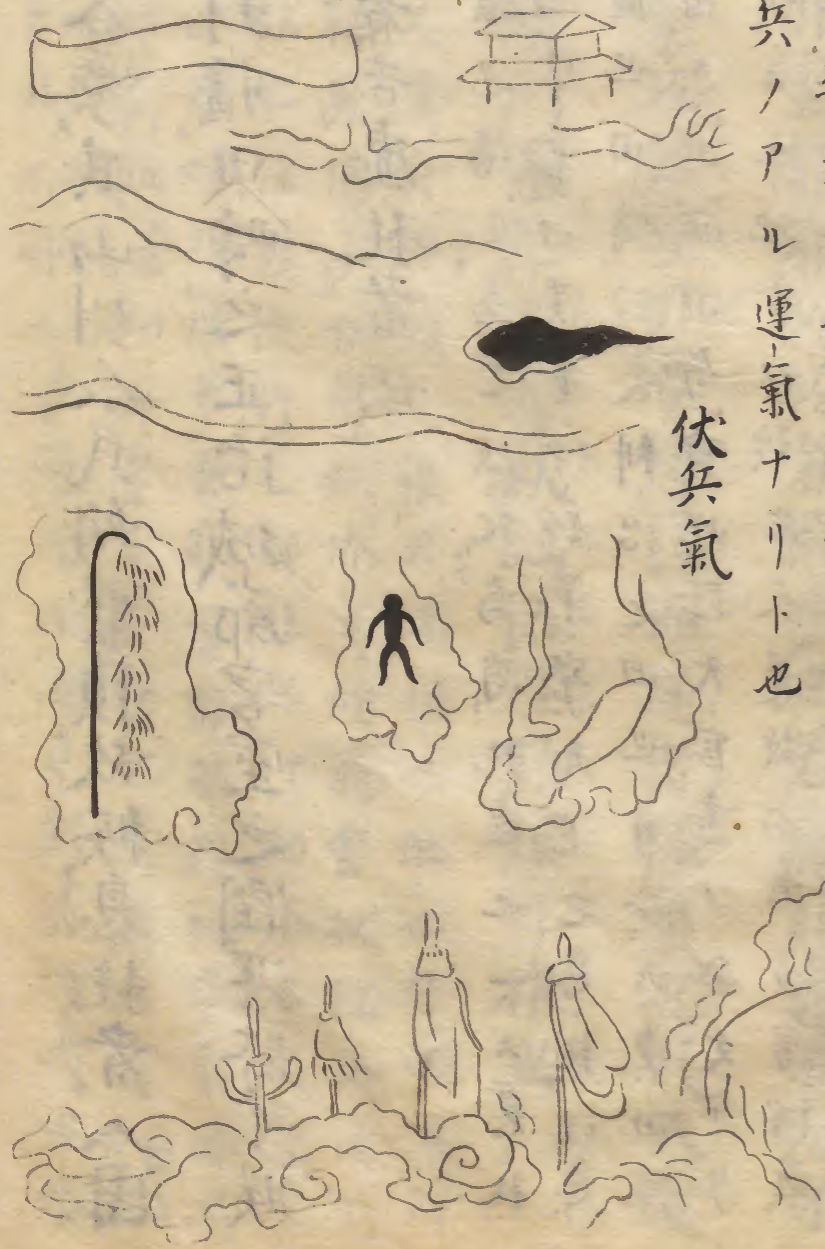 兵ノアル運氣ナリト也
伏兵氣